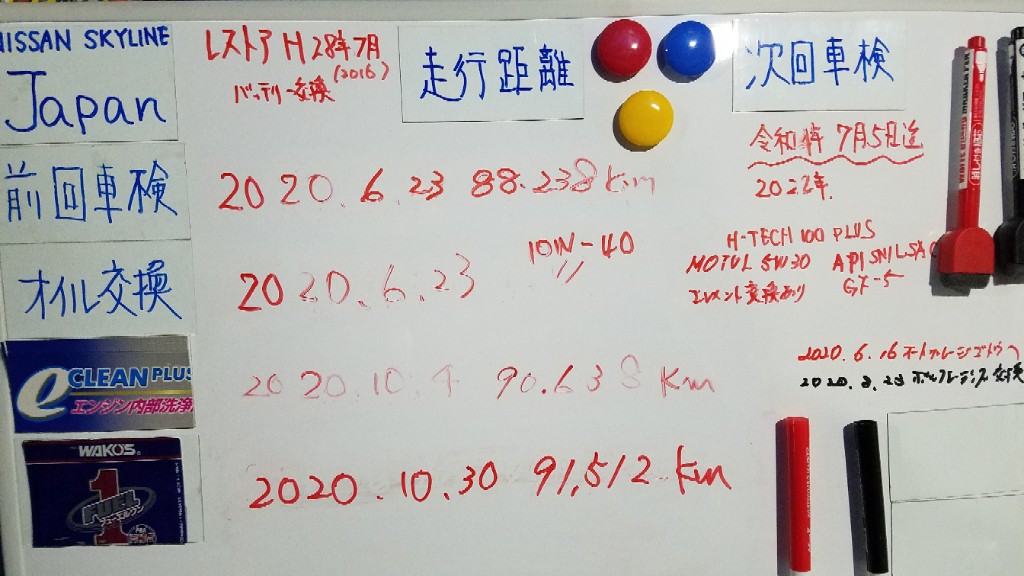 NISSAN SKYLINE
Japan
レストア H28年7月
(2016)
バッテリー交換
走行距離
次回車検
令和4年 7月5日迄
2022年.
前回車検
2020.6.23 88.238km
オイル交換
2020.6.23
10W-40
H-TECH 100 PLUS
MOTUL 5W30 API SN/ILSAC
エレメント交換あり GF-5
e CLEAN PLUS
エンジン内部洗浄
2020.10.4 90.638km
2020.6.16
2020.8.28 交換
WAKO'S
FUEL
1
2020.10.30 91,512km